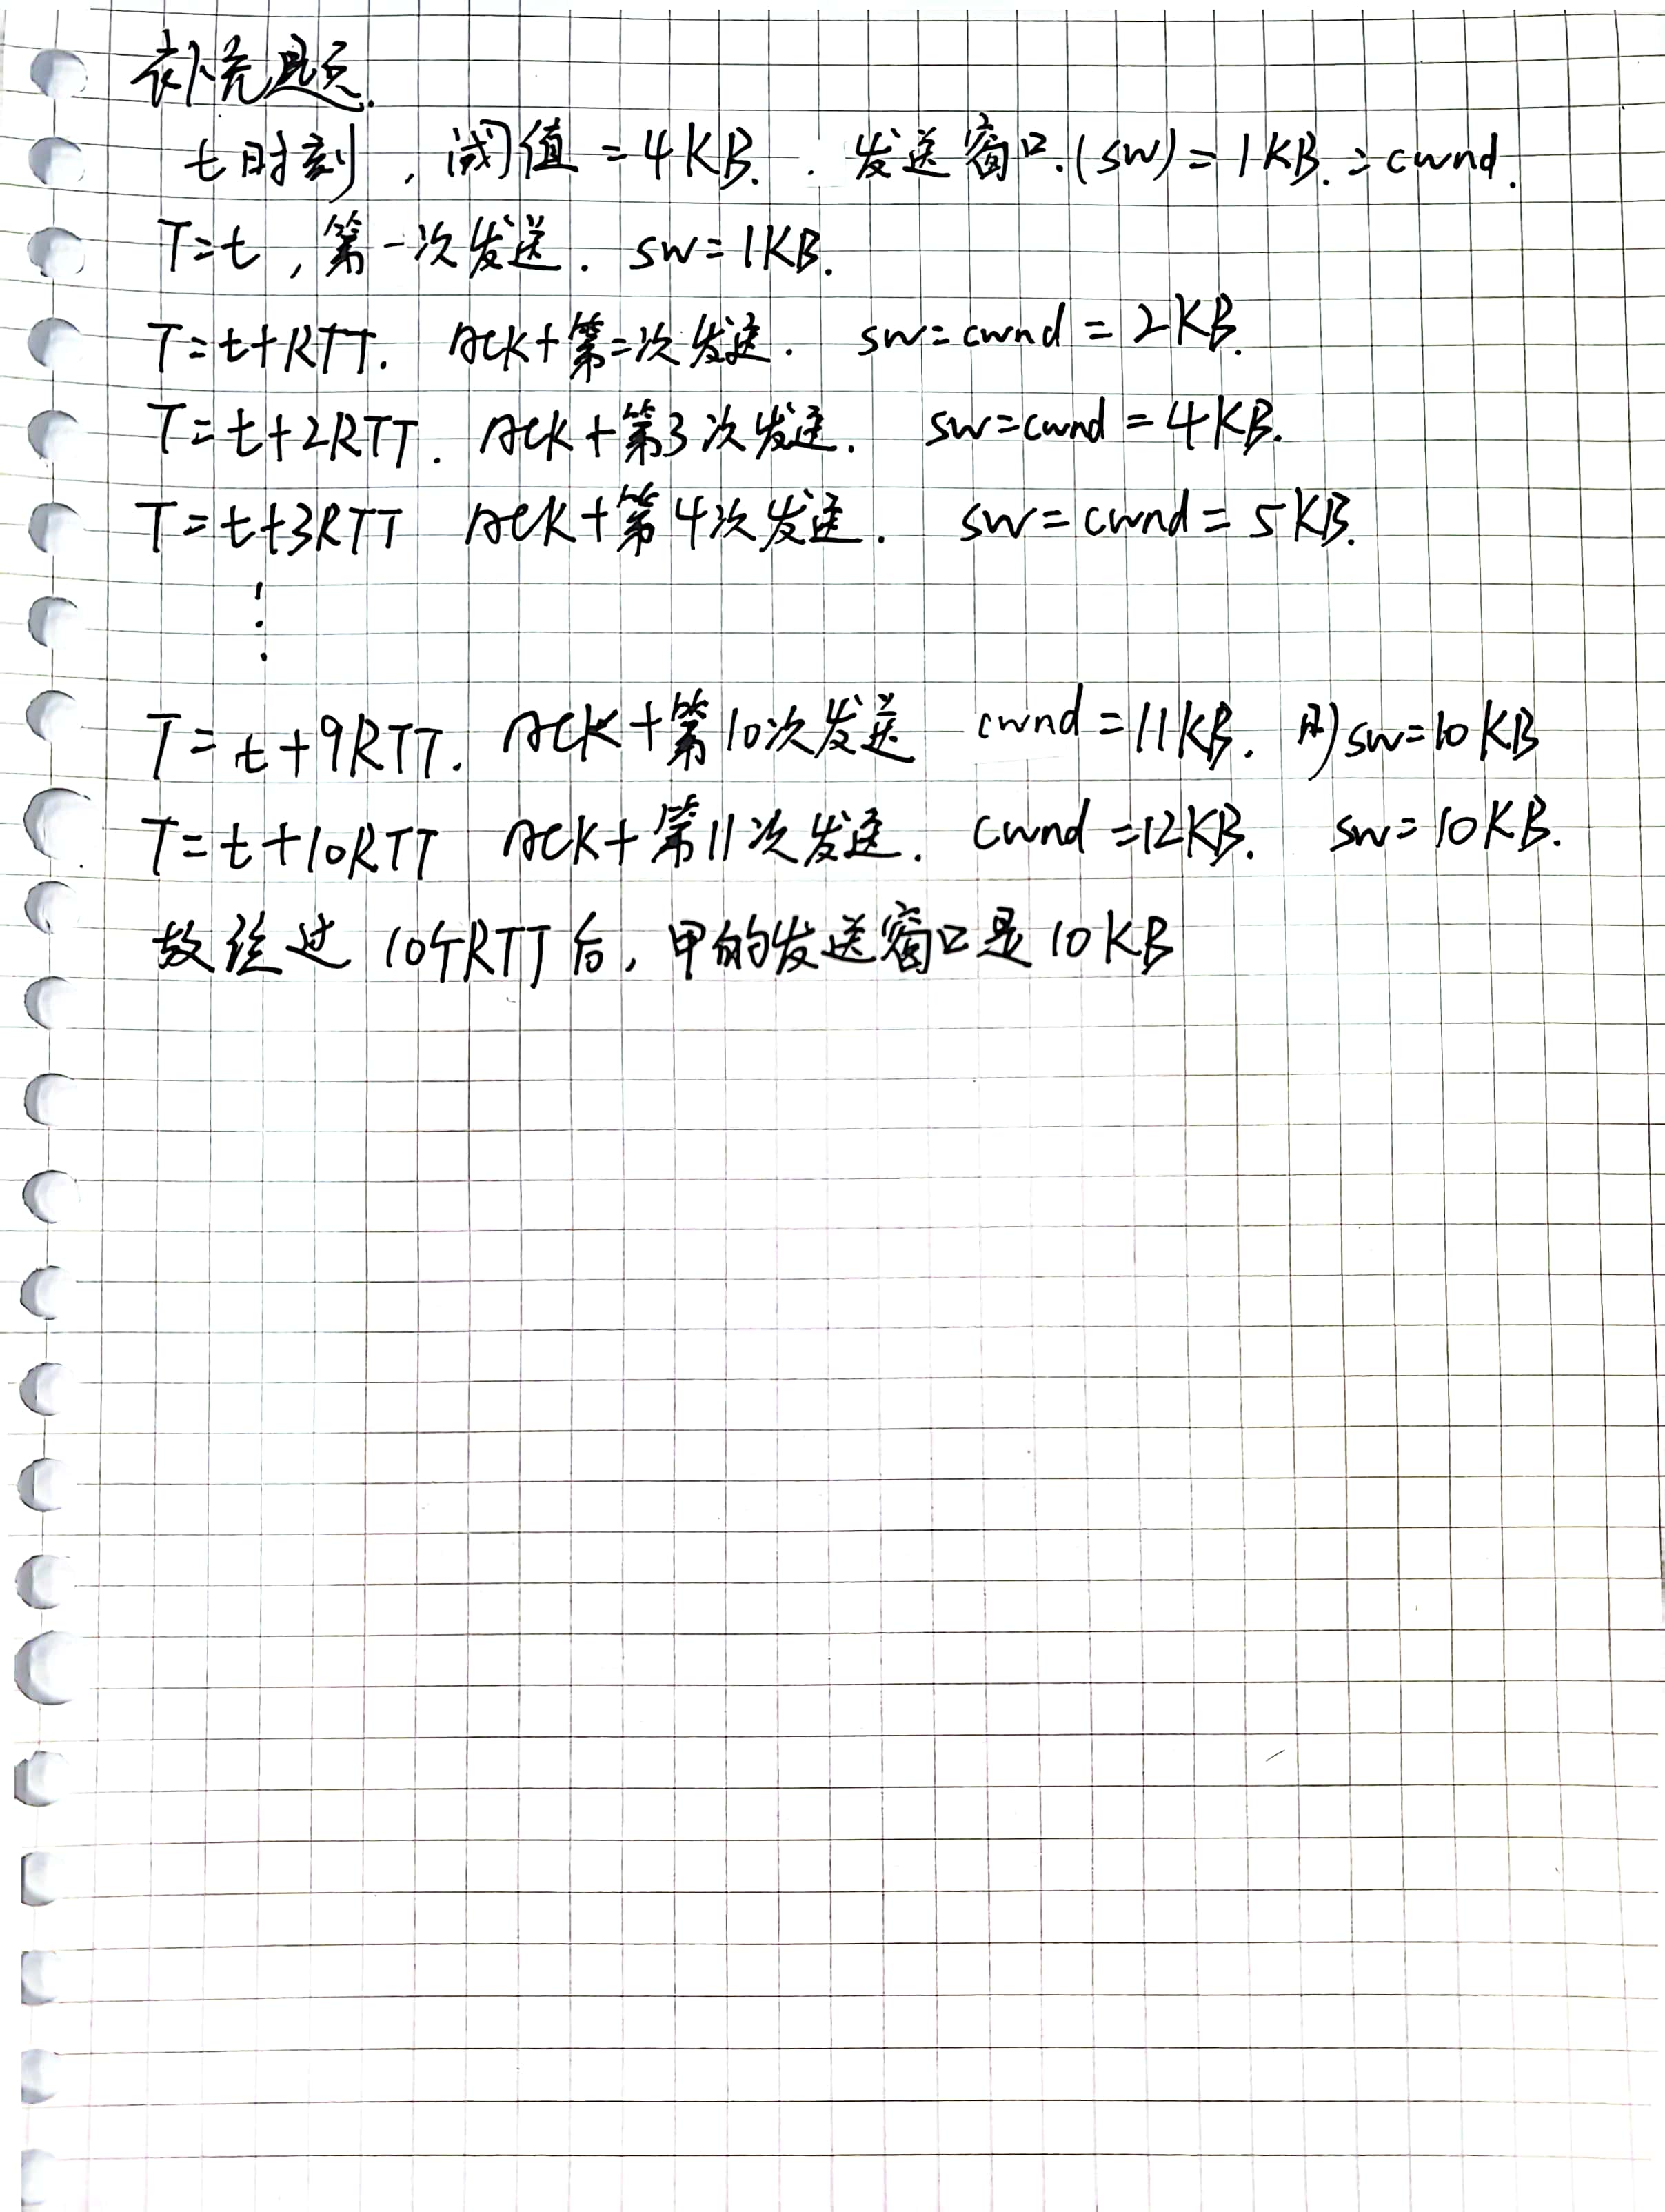 补充题.
t时刻, 阈值=4KB. 发送窗口.(sw)=1KB.=cwnd.
T=t, 第一次发送. sw=1KB.
T=t+RTT. ACK+第二次发送. sw=cwnd=2KB.
T=t+2RTT. ACK+第3次发送. sw=cwnd=4KB.
T=t+3RTT ACK+第4次发送. sw=cwnd=5KB.
⋮
T=t+9RTT. ACK+第10次发送 cwnd=11KB. 则sw=10KB
T=t+10RTT ACK+第11次发送. cwnd=12KB. sw=10KB.
故经过10个RTT后, 甲的发送窗口是10KB